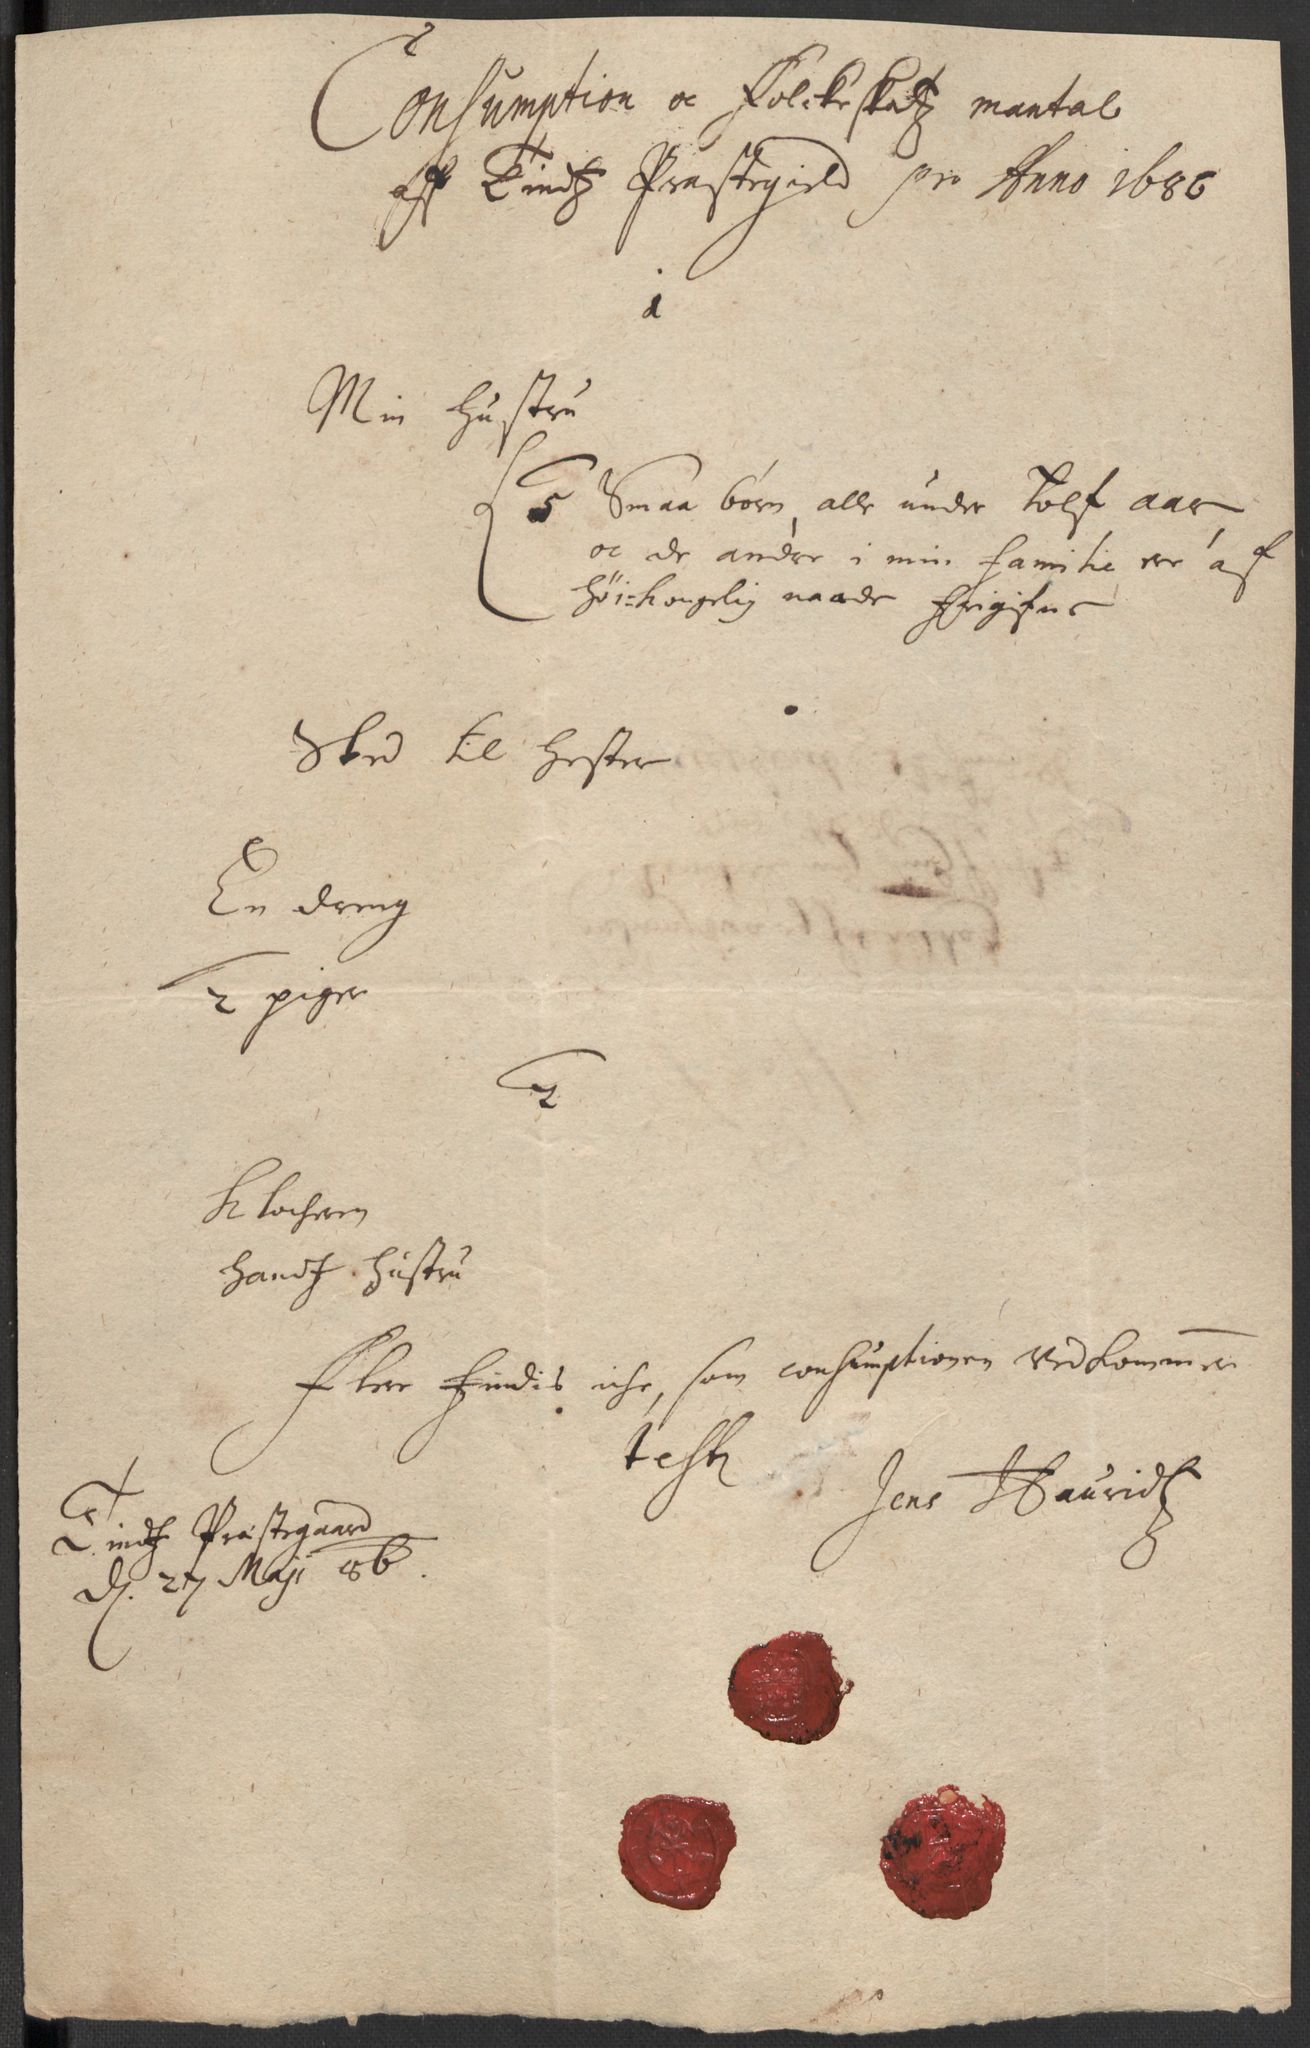 Consumption oc Folckeskatz mantal
aff Tindtz Præstegield pro Anno 1686
1
Min hustru
5 Smaa børn, alle under tolf aar
oc de andre i min familie ere af
høi=kongelig naade frigifne
Sked til hester
En dreng
2 piger
2
Klocheren
handtz hustru
Flere findis iche, som consumptionen vedkommer
test
Jens Lauridtz
Tindtz Præstegaard
d. 27 Maji 86.